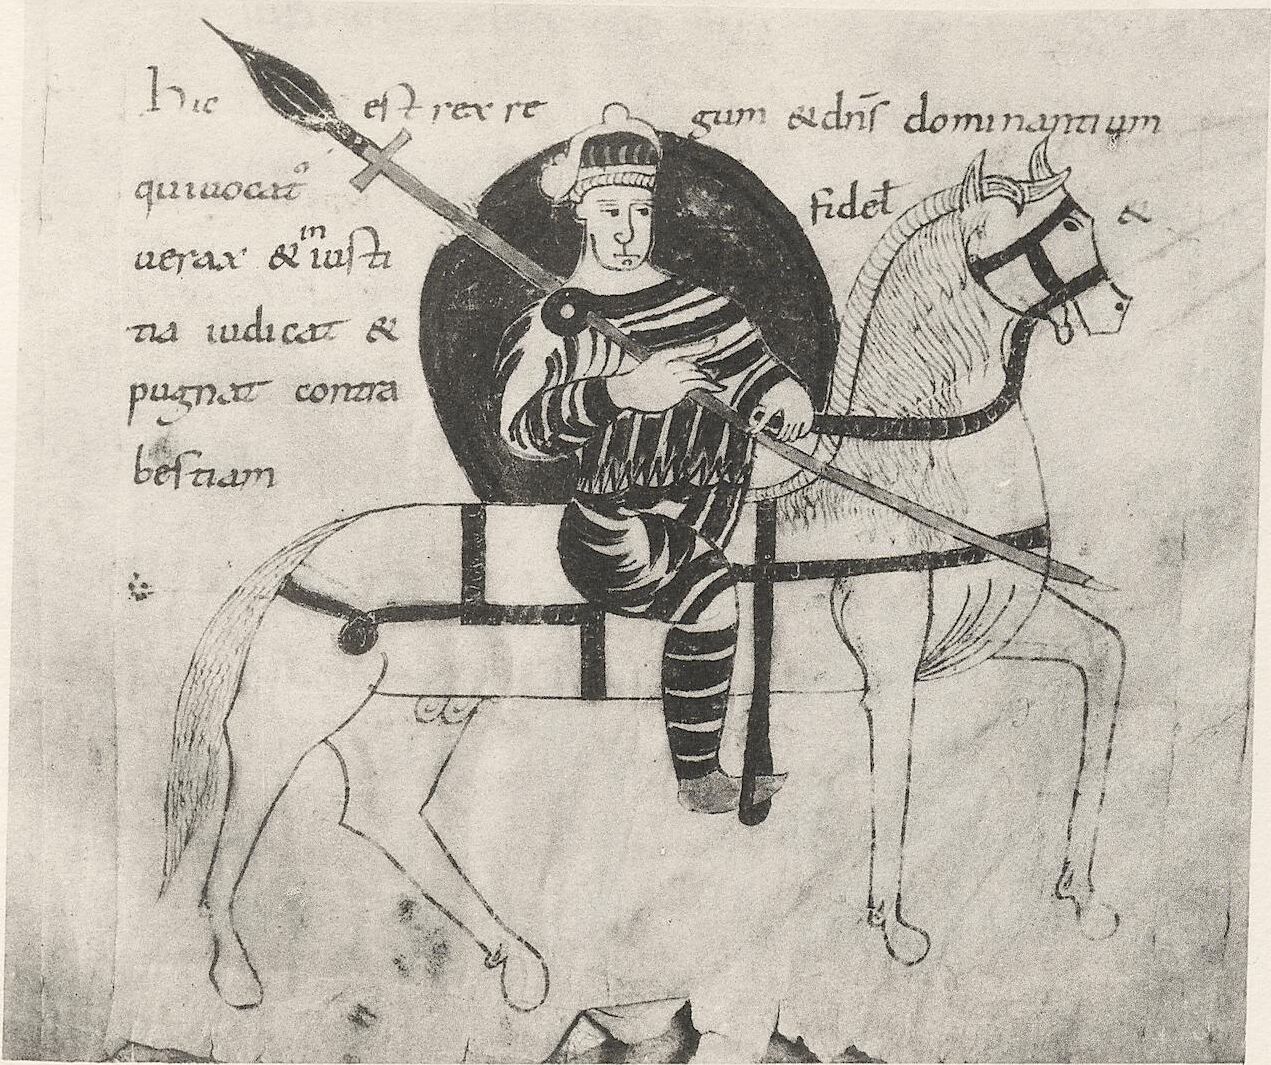 hic est rex regum & dn̄s dominantium
qui uocatᵒ fidel̄ &
uerax & in iusti
tia iudicat &
pugnat contra
bestiam